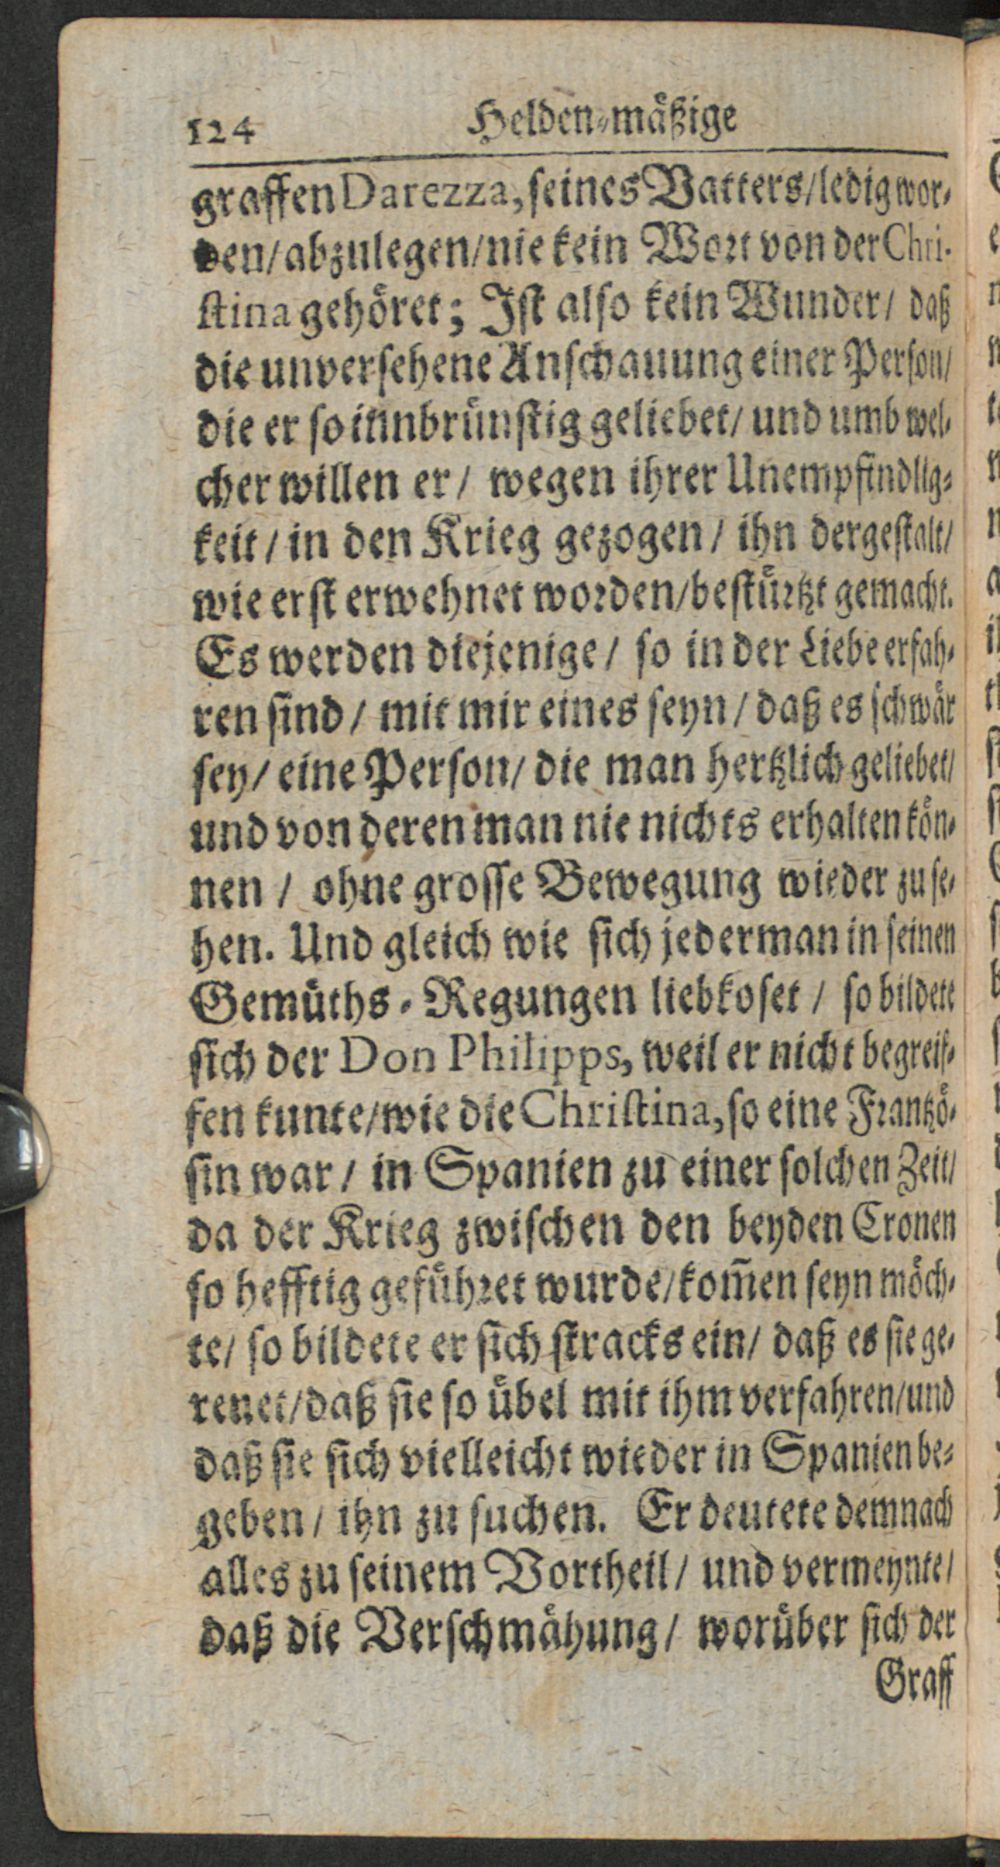 124 Helden-mäßige
graffen Darezza, seines Vatters/ ledig wor-
den/ abzulegen/ nie kein Wort von der Chri-
stina gehöret; Ist also kein Wunder/ daß
die unversehene Anschauung einer Person/
die er so innbrünstig geliebet/ und umb wel-
cher willen er/ wegen ihrer Unempfindlig-
keit/ in den Krieg gezogen/ ihn dergestalt/
wie erst erwehnet worden/ bestürtzt gemacht.
Es werden diejenige/ so in der Liebe erfah-
ren sind/ mit mir eines seyn/ daß es schwär
sey/ eine Person/ die man hertzlich geliebet/
und von deren man nie nichts erhalten kön-
nen/ ohne grosse Bewegung wieder zu se-
hen. Und gleich wie sich jederman in seinen
Gemüths-Regungen liebkoset/ so bildete
sich der Don Philipps, weil er nicht begreif-
fen kunte/ wie die Christina, so eine Frantzö-
sin war/ in Spanien zu einer solchen Zeit/
da der Krieg zwischen den beyden Cronen
so hefftig geführet wurde/ kom̄en seyn möch-
te/ so bildete er sich stracks ein/ daß es sie ge-
reuet/ daß sie so übel mit ihm verfahren/ und
daß sie sich vielleicht wieder in Spanien be-
geben/ ihn zu suchen. Er deutete demnach
alles zu seinem Vortheil/ und vermeynte/
daß die Verschmähung/ worüber sich der
Graff